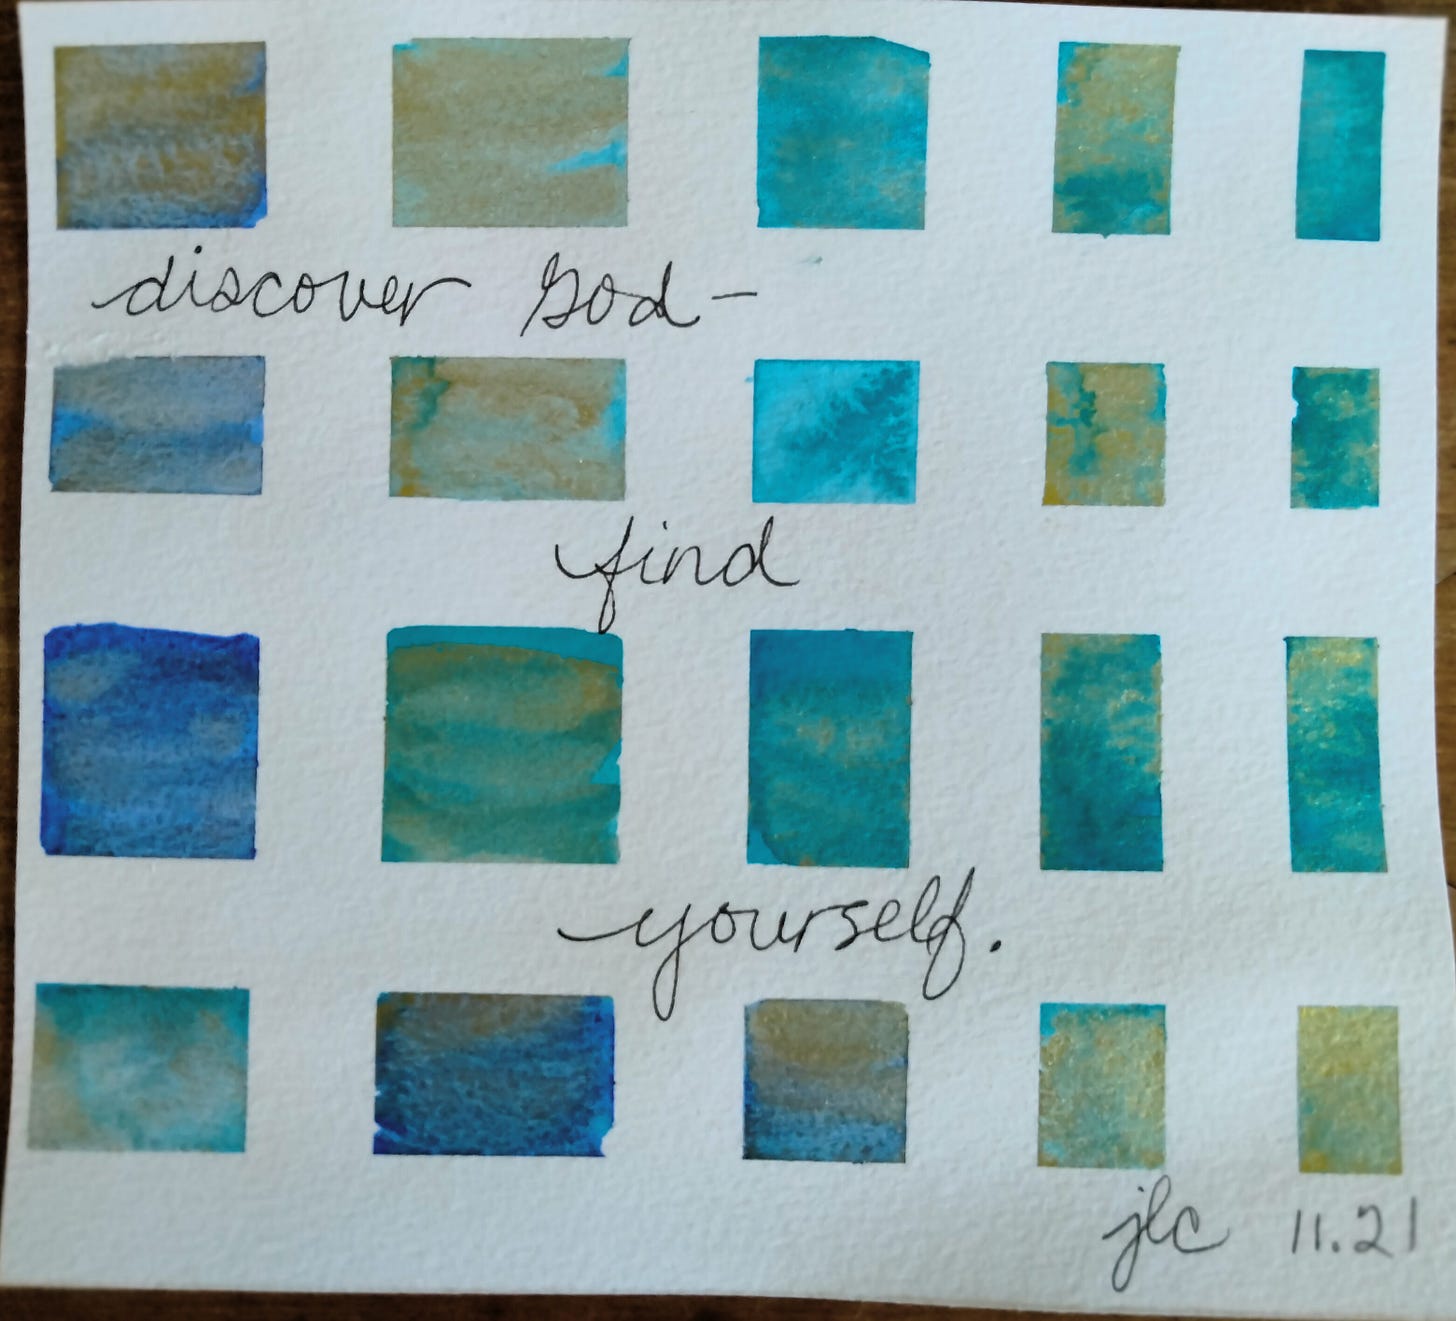 discover God-
find
yourself.
jlc 11.21